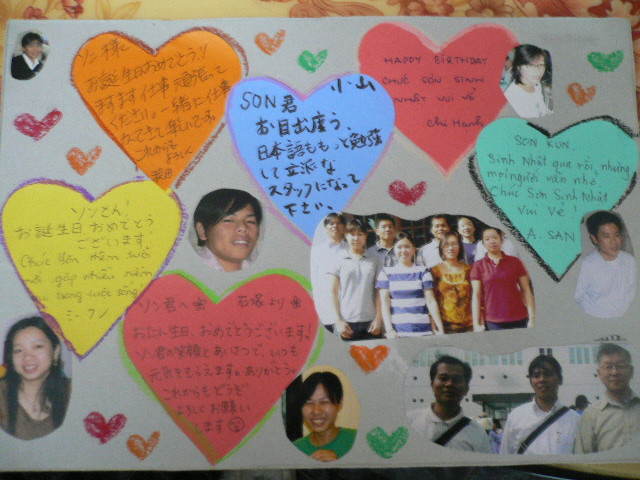 ソン様
お誕生日おめでとう!!
ますます仕事頑張って
ください。一緒に仕事
できて
これからも
よろしく
SON君
小山
お目出度う、
日本語ももっと勉強
して立派な
スタッフになって
下さい。
HAPPY BIRTHDAY
CHÚC SƠN SINH
NHẬT VUI VẺ
Chị Hạnh
SON KUN.
Sinh Nhật qua rồi, nhưng
mọi người vẫn nhớ
Chúc Sơn Sinh Nhật
Vui Vẻ!
A. SAN
ソンさん!
お誕生日おめでとう
ございます。
Chúc Sơn thêm tuổi
mới gặp nhiều niềm
vui trong cuộc sống!
ミーフン
ソン君へ
石塚より
おたん生日、おめでとうございます!
ソン君の笑顔とあいさつで、いつも
元気をもらえます。ありがとう。
これからもどうぞ
よろしくお願い
します